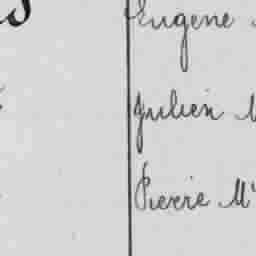 Eugene
Julien M
Pierre M